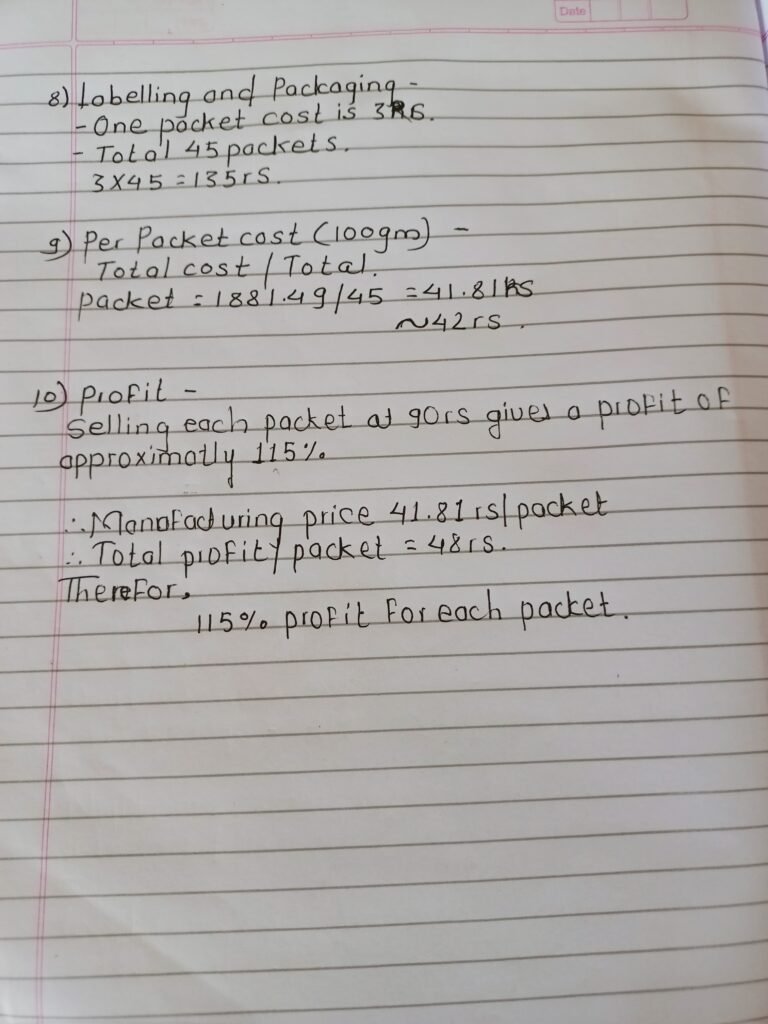 Date
8) Labelling and Packaging -
- One packet cost is 3RS.
- Total 45 packets.
3 X 45 = 135rs.
9) Per Packet cost (100gm) -
Total cost / Total.
packet = 1881.49/45 = 41.81RS
~42rs.
10) Profit -
Selling each packet at 90rs gives a profit of
approximatly 115%.
∴ Manafacturing price 41.81rs/packet
∴ Total profit/packet = 48rs.
Therefor,
115% profit for each packet.